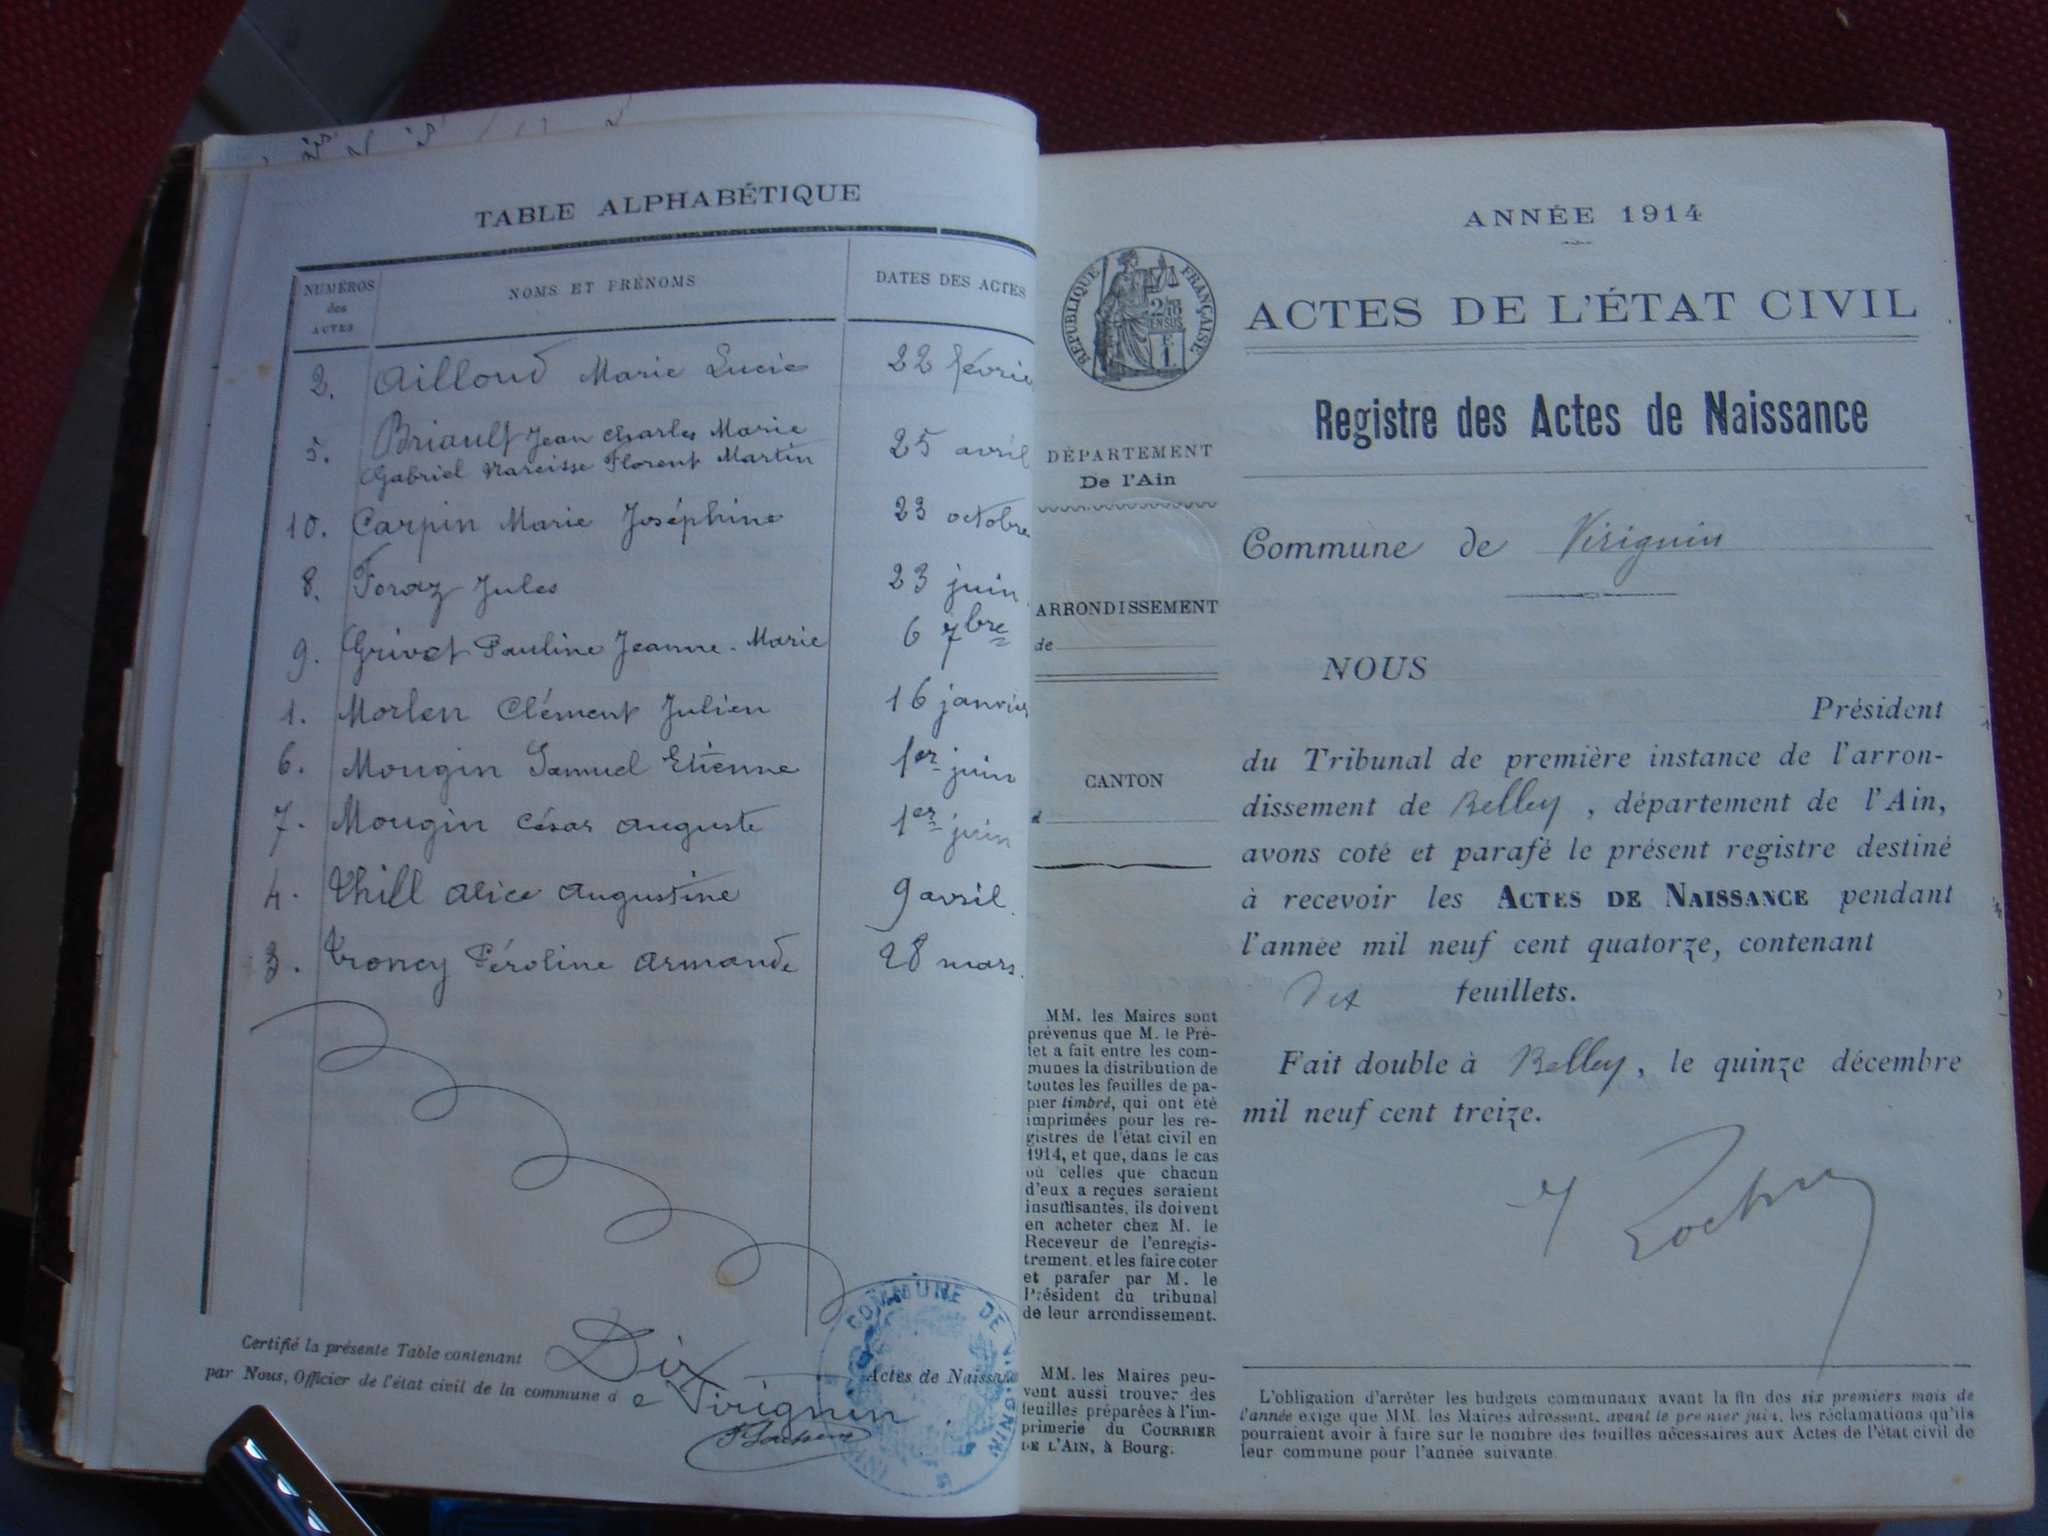 TABLE ALPHABÉTIQUE
NUMÉROS des ACTES
NOMS ET PRÉNOMS
DATES DES ACTES
2. Ailloud Marie Lucie 22 févrie
5. Briault Jean Charles Marie 25 avril
Gabriel Narcisse Florent Martin
10. Carpin Marie Joséphine 23 octobre
8. Foraz Jules 23 juin
9. Grivet Pauline Jeanne-Marie 6 7bre
1. Morlen Clément Julien 16 janvier
6. Mougin Samuel Etienne 1er juin
7. Mougin César auguste 1er juin
4. Thill Alice Augustine 9 avril.
3. Troncy Péroline Armande 28 mars.
Certifié la présente Table contenant Dix Actes de Naissance
par Nous, Officier de l'état civil de la commune de Virignin.
COMMUNE DE VIRIGNIN
ANNÉE 1914
RÉPUBLIQUE FRANÇAISE
ACTES DE L'ÉTAT CIVIL
Registre des Actes de Naissance
DÉPARTEMENT
De l'Ain
Commune de Virignin
ARRONDISSEMENT
de
CANTON
d
NOUS
Président
du Tribunal de première instance de l'arron-
dissement de Belley, département de l'Ain,
avons coté et parafé le présent registre destiné
à recevoir les ACTES DE NAISSANCE pendant
l'année mil neuf cent quatorze, contenant
Dix feuillets.
Fait double à Belley, le quinze décembre
mil neuf cent treize.
MM. les Maires sont
prévenus que M. le Pré-
fet a fait entre les com-
munes la distribution de
toutes les feuilles de pa-
pier timbré, qui ont été
imprimées pour les re-
gistres de l'état civil en
1914, et que, dans le cas
où celles que chacun
d'eux a reçues seraient
insuffisantes, ils doivent
en acheter chez M. le
Receveur de l'enregis-
trement, et les faire coter
et parafer par M. le
Président du tribunal
de leur arrondissement.
MM. les Maires peu-
vent aussi trouver des
feuilles préparées à l'im-
primerie du COURRIER
DE L'AIN, à Bourg.
L'obligation d'arrêter les budgets communaux avant la fin des six premiers mois de
l'année exige que MM. les Maires adressent, avant le premier juin, les réclamations qu'ils
pourraient avoir à faire sur le nombre des feuilles nécessaires aux Actes de l'état civil de
leur commune pour l'année suivante.